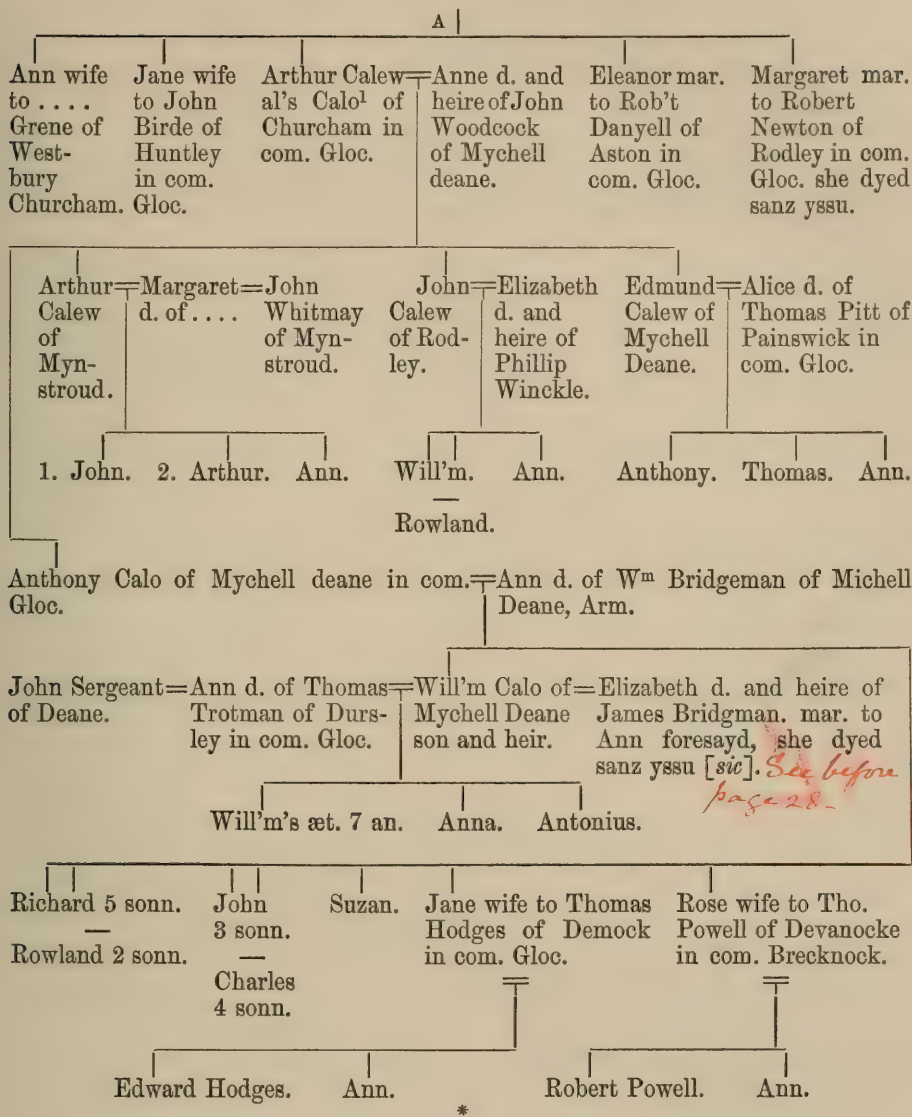 A
Ann wife
to . . . .
Grene of
West-
bury
Churcham.
Jane wife
to John
Birde of
Huntley
in com.
Gloc.
Arthur Calew
al's Calo¹ of
Churcham in
com. Gloc.
Anne d. and
heire of John
Woodcock
of Mychell
deane.
Eleanor mar.
to Rob't
Danyell of
Aston in
com. Gloc.
Margaret mar.
to Robert
Newton of
Rodley in com.
Gloc. she dyed
sanz yssu.
Arthur
Calew
of
Myn-
stroud.
Margaret
d. of . . . .
John
Whitmay
of Myn-
stroud.
John
Calew
of Rod-
ley.
Elizabeth
d. and
heire of
Phillip
Winckle.
Edmund
Calew of
Mychell
Deane.
Alice d. of
Thomas Pitt of
Painswick in
com. Gloc.
1. John. 2. Arthur. Ann.
Will'm. Ann.
—
Rowland.
Anthony. Thomas. Ann.
Anthony Calo of Mychell deane in com.
Gloc.
Ann d. of Wᵐ Bridgeman of Michell
Deane, Arm.
John Sergeant
of Deane.
Ann d. of Thomas
Trotman of Durs-
ley in com. Gloc.
Will'm Calo of
Mychell Deane
son and heir.
Elizabeth d. and heire of
James Bridgman. mar. to
Ann foresayd, she dyed
sanz yssu [sic]. See before
page 28-
Will'm's æt. 7 an. Anna. Antonius.
Richard 5 sonn.
—
Rowland 2 sonn.
John
3 sonn.
—
Charles
4 sonn.
Suzan.
Jane wife to Thomas
Hodges of Demock
in com. Gloc.
Rose wife to Tho.
Powell of Devanocke
in com. Brecknock.
Edward Hodges. Ann.
Robert Powell. Ann.
*